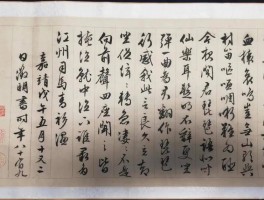 血猿哀鳴豈無山歌與
村笛嘔啞嘲哳難為聽
今夜聞君琵琶語如聽
仙樂耳暫明莫辭更坐
彈一曲為君翻作琵琶
行感我此言良久立却
坐促絃〻轉急凄〻不是
向前聲四座聞之皆
掩泣就中泣下誰最多
江州司馬青衫濕
嘉靖戊午五月十又二
日徵明書時年八十有九